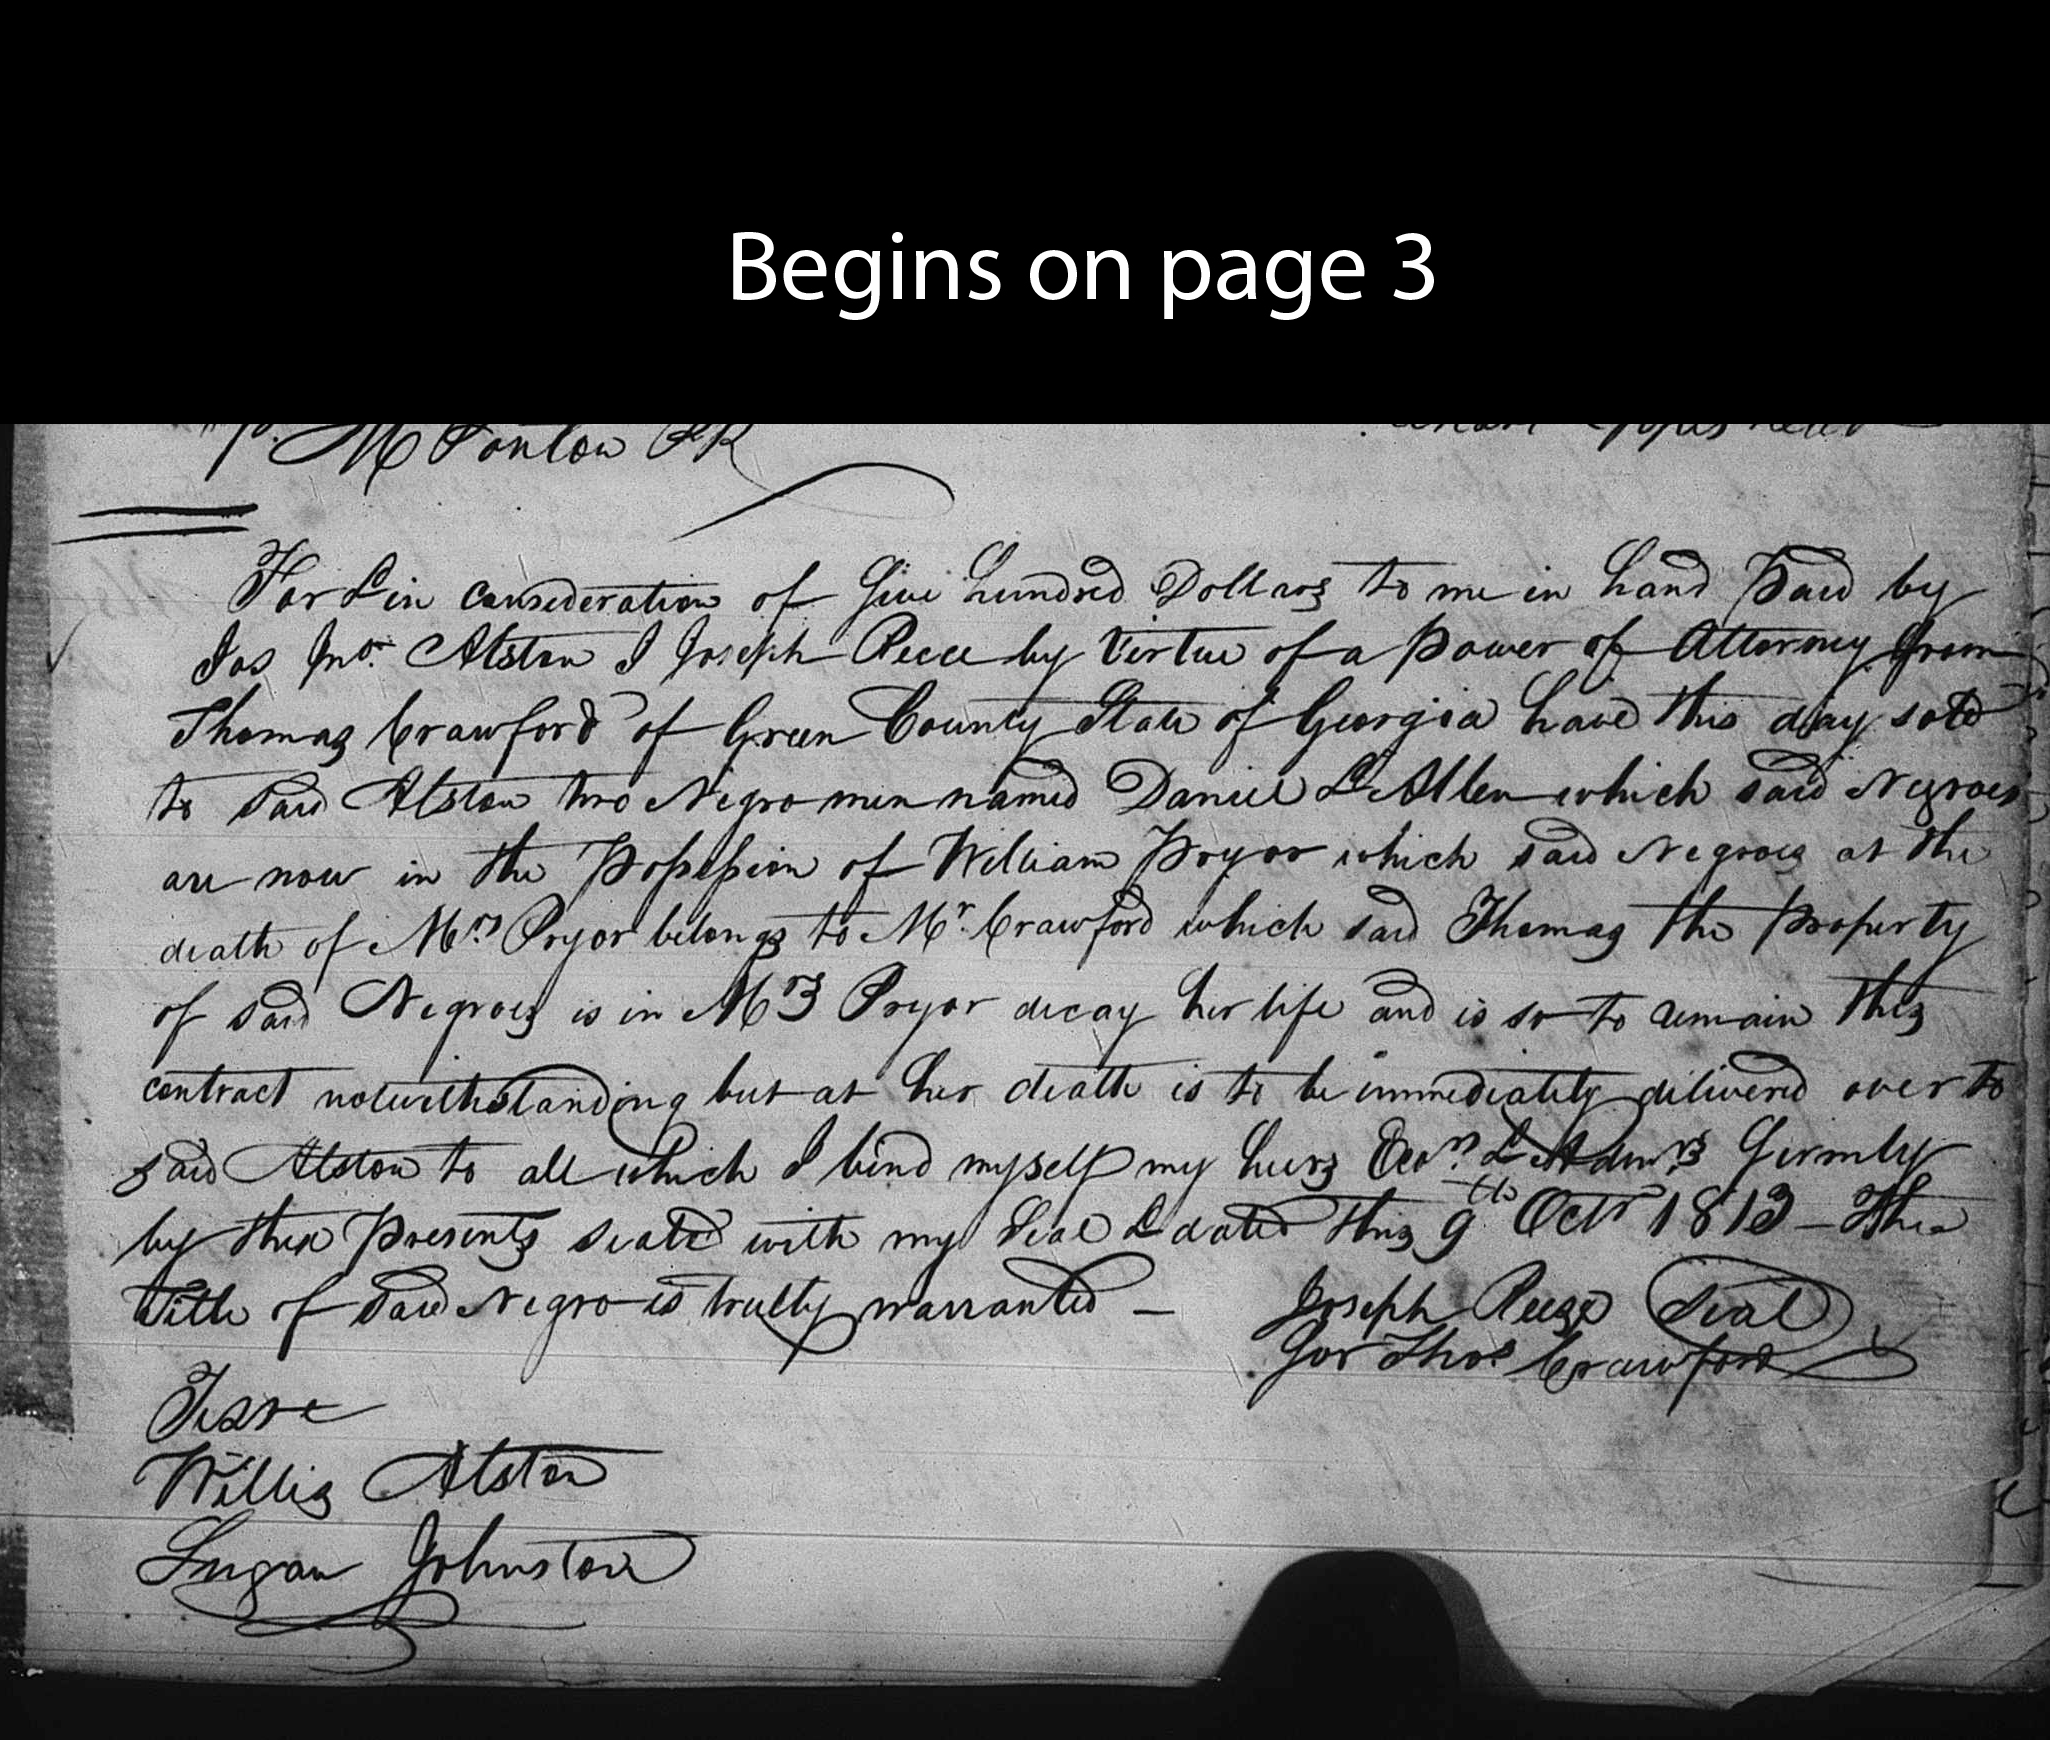 Begins on page 3
McFonlow PR
For & in consideration of five hundred Dollars to me in hand paid by
Jas Jno. Alston I Joseph Reece by Virtue of a power of Attorney from
Thomas Crawford of Green County State of Georgia have this day sold
to said Alston two Negro men named Daniel & Allen which said Negroes
are now in the Possession of William Pryor which said Negroes at the
death of Mrs Pryor belongs to Mr. Crawford which said Thomas the property
of said Negroes is in Mrs Pryor decay her life and is so to remain this
contract notwithstanding but at her death is to be immediately delivered over to
said Alston to all which I bind myself my heirs Exrs. & Admrs firmly
by these Presents sealed with my Seal & dated this 9th Octr 1813 – The
Title of said Negro is trully warranted –
Joseph Reese Seal
for Thos Crawford
Teste
Willis Alston
Johnston